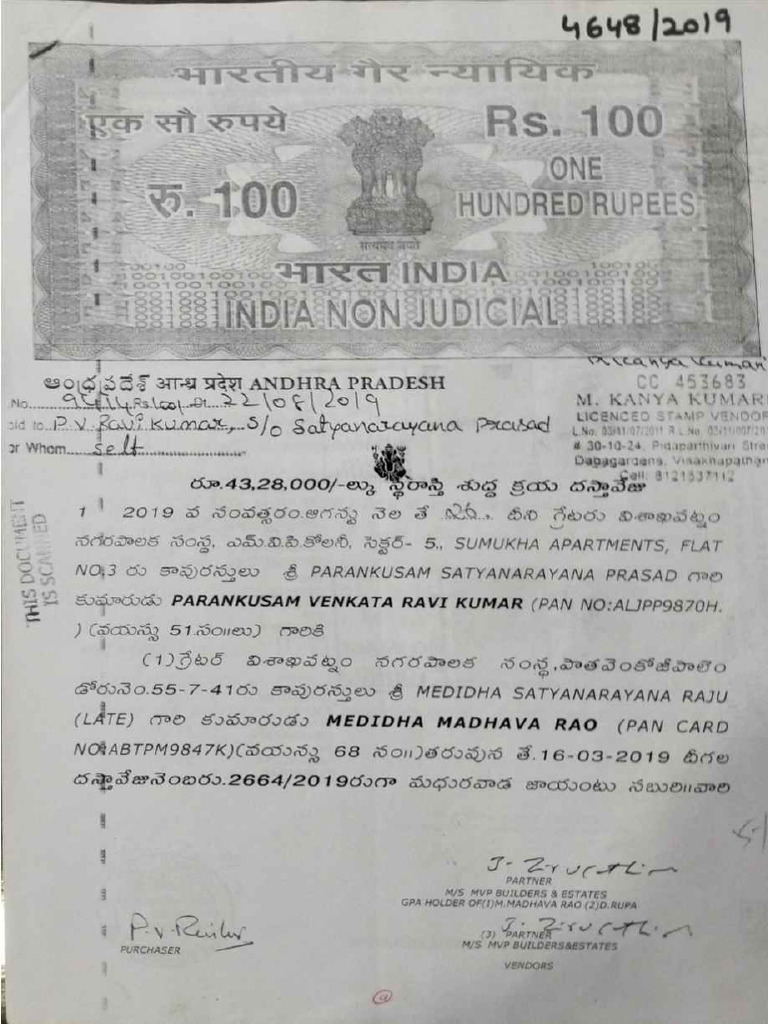 4648/2019
भारतीय गैर न्यायिक
एक सौ रुपये
Rs. 100
रु. 100
ONE
HUNDRED RUPEES
सत्यमेव जयते
भारत INDIA
INDIA NON JUDICIAL
ఆంధ్రప్రదేశ్ आन्ध्र प्रदेश ANDHRA PRADESH
CC 453683
No. Rs.100/- Dt. 22/08/2019
M. KANYA KUMARI
LICENCED STAMP VENDOR
old to P.V. Ravi Kumar, S/o Satyanarayana Prasad
or Whom self
# 30-10-24, Pidaparthivari Street
Dabagardens, Visakhapatnam
Cell: 8121537112
రూ.43,28,000/-ల్కు స్థిరాస్తి శుద్ధ క్రయ దస్తావేజు
1 2019 వ సంవత్సరం.ఆగస్టు నెల తే దిని గ్రేటరు విశాఖపట్నం
నగరపాలక సంస్థ, ఎమ్.వి.పి.కోలనీ, సెక్టర్- 5., SUMUKHA APARTMENTS, FLAT
NO.3 రు కాపురస్తులు శ్రీ PARANKUSAM SATYANARAYANA PRASAD గారి
కుమారుడు PARANKUSAM VENKATA RAVI KUMAR (PAN NO:ALJPP9870H.
) (వయస్సు 51.సం॥లు) గారికి
THIS DOCUMENT
IS SCANNED
(1)గ్రేటర్ విశాఖపట్నం నగరపాలక సంస్థ,పాతవెంకోజీపాలెం
డోరునెం.55-7-41రు కాపురస్తులు శ్రీ MEDIDHA SATYANARAYANA RAJU
(LATE) గారి కుమారుడు MEDIDHA MADHAVA RAO (PAN CARD
NO:ABTPM9847K)(వయస్సు 68 సం॥)తరువున తే.16-03-2019 దీగల
దస్తావేజునెంబరు.2664/2019రుగా మధురవాడ జాయింటు సబురి॥వారి
PARTNER
M/S MVP BUILDERS & ESTATES
GPA HOLDER OF(1)M.MADHAVA RAO (2)D.RUPA
P.V. Ravi
PURCHASER
(3) PARTNER
M/S MVP BUILDERS&ESTATES
VENDORS